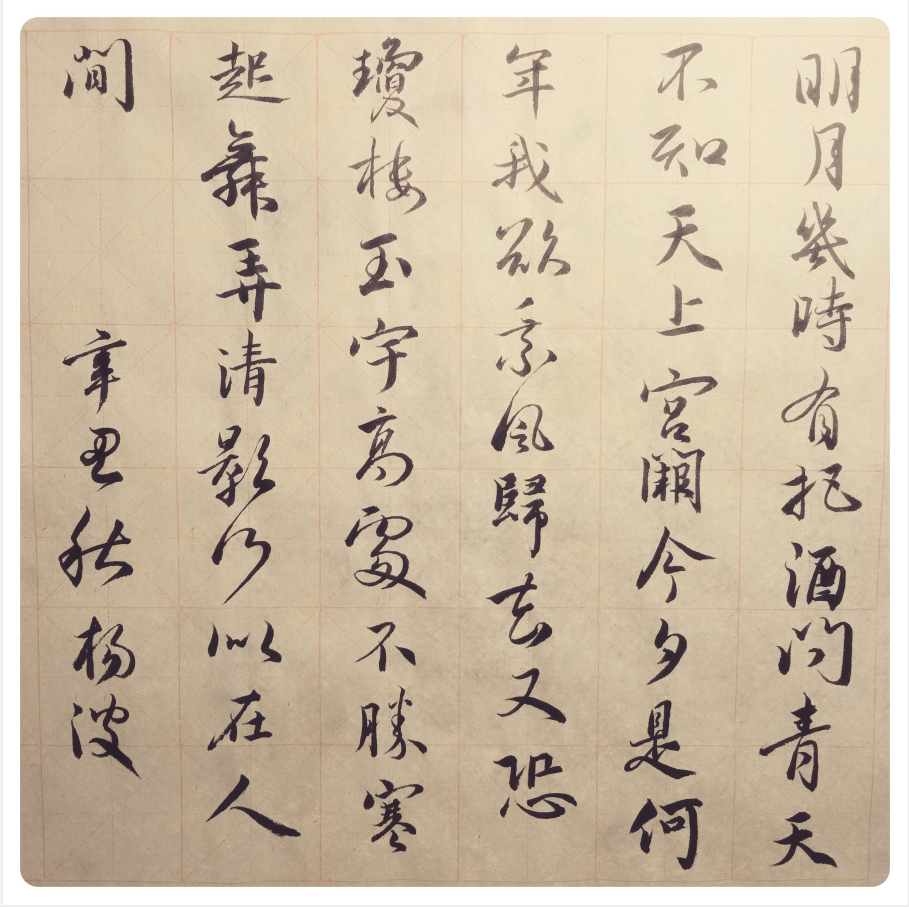 明月幾時有把酒問青天
不知天上宮闕今夕是何
年我欲乘風歸去又恐
瓊樓玉宇高處不勝寒
起舞弄清影何似在人
間 辛丑秋楊波